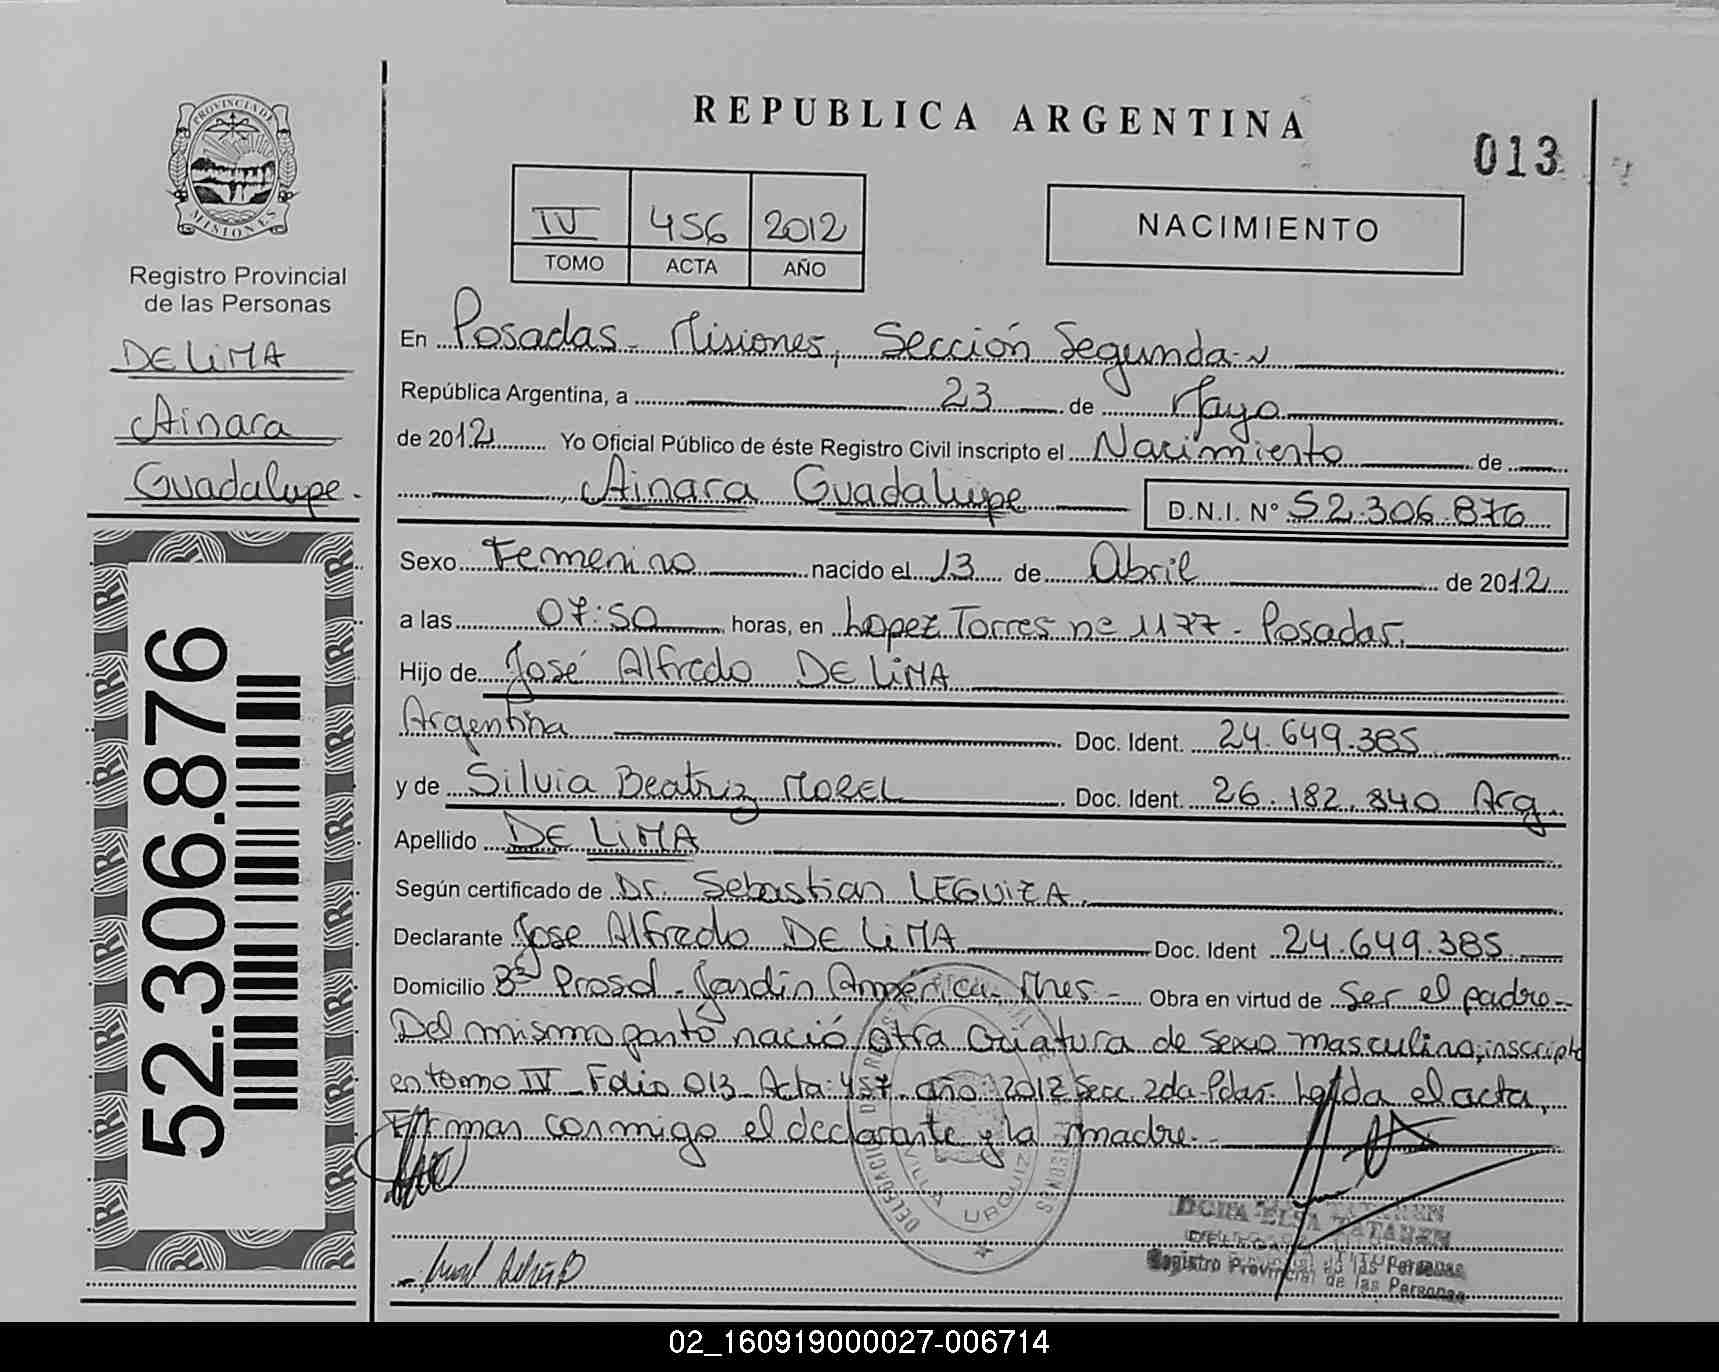 REPUBLICA ARGENTINA
013
PROVINCIA DE
MISIONES
Registro Provincial
de las Personas
DE LIMA
Ainara
Guadalupe.
52.306.876
IV 456 2012
TOMO ACTA AÑO
NACIMIENTO
En Posadas - Misiones, Sección Segunda
República Argentina, a 23 de Mayo
de 2012 Yo Oficial Público de éste Registro Civil inscripto el Nacimiento de
Ainara Guadalupe D.N.I. N° 52.306.876
Sexo Femenino nacido el 13 de Abril de 2012
a las 07:50 horas, en Lopez Torres nº 1177 - Posadas.
Hijo de José Alfredo DE LIMA
Argentina Doc. Ident. 24.649.385
y de Silvia Beatriz MOREL Doc. Ident. 26.182.840 Arg.
Apellido DE LIMA
Según certificado de Dr. Sebastian LEGUIZA.
Declarante Jose Alfredo DE LIMA Doc. Ident 24.649.385
Domicilio Bº Prosol - Jardín América - Mnes - Obra en virtud de Ser el padre -
Del mismo parto nació otra criatura de sexo masculino, inscripto
en tomo IV - Folio 013 - Acta: 457 - año: 2012 Secc. 2da - Pdas - Leída el acta,
Firman conmigo el declarante y la madre. -
VILLA URQUIZA
DORA ELSA
Registro Provincial de las Personas
02_160919000027-006714